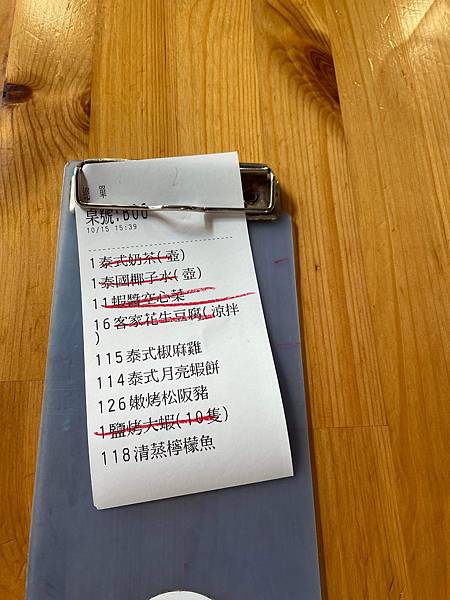 桌號:B06
10/15 15:39
1泰式奶茶(壺)
1泰國椰子水(壺)
11蝦醬空心菜
16客家花生豆腐(涼拌
)
115泰式椒麻雞
114泰式月亮蝦餅
126嫩烤松阪豬
1鹽烤大蝦(10隻)
118清蒸檸檬魚